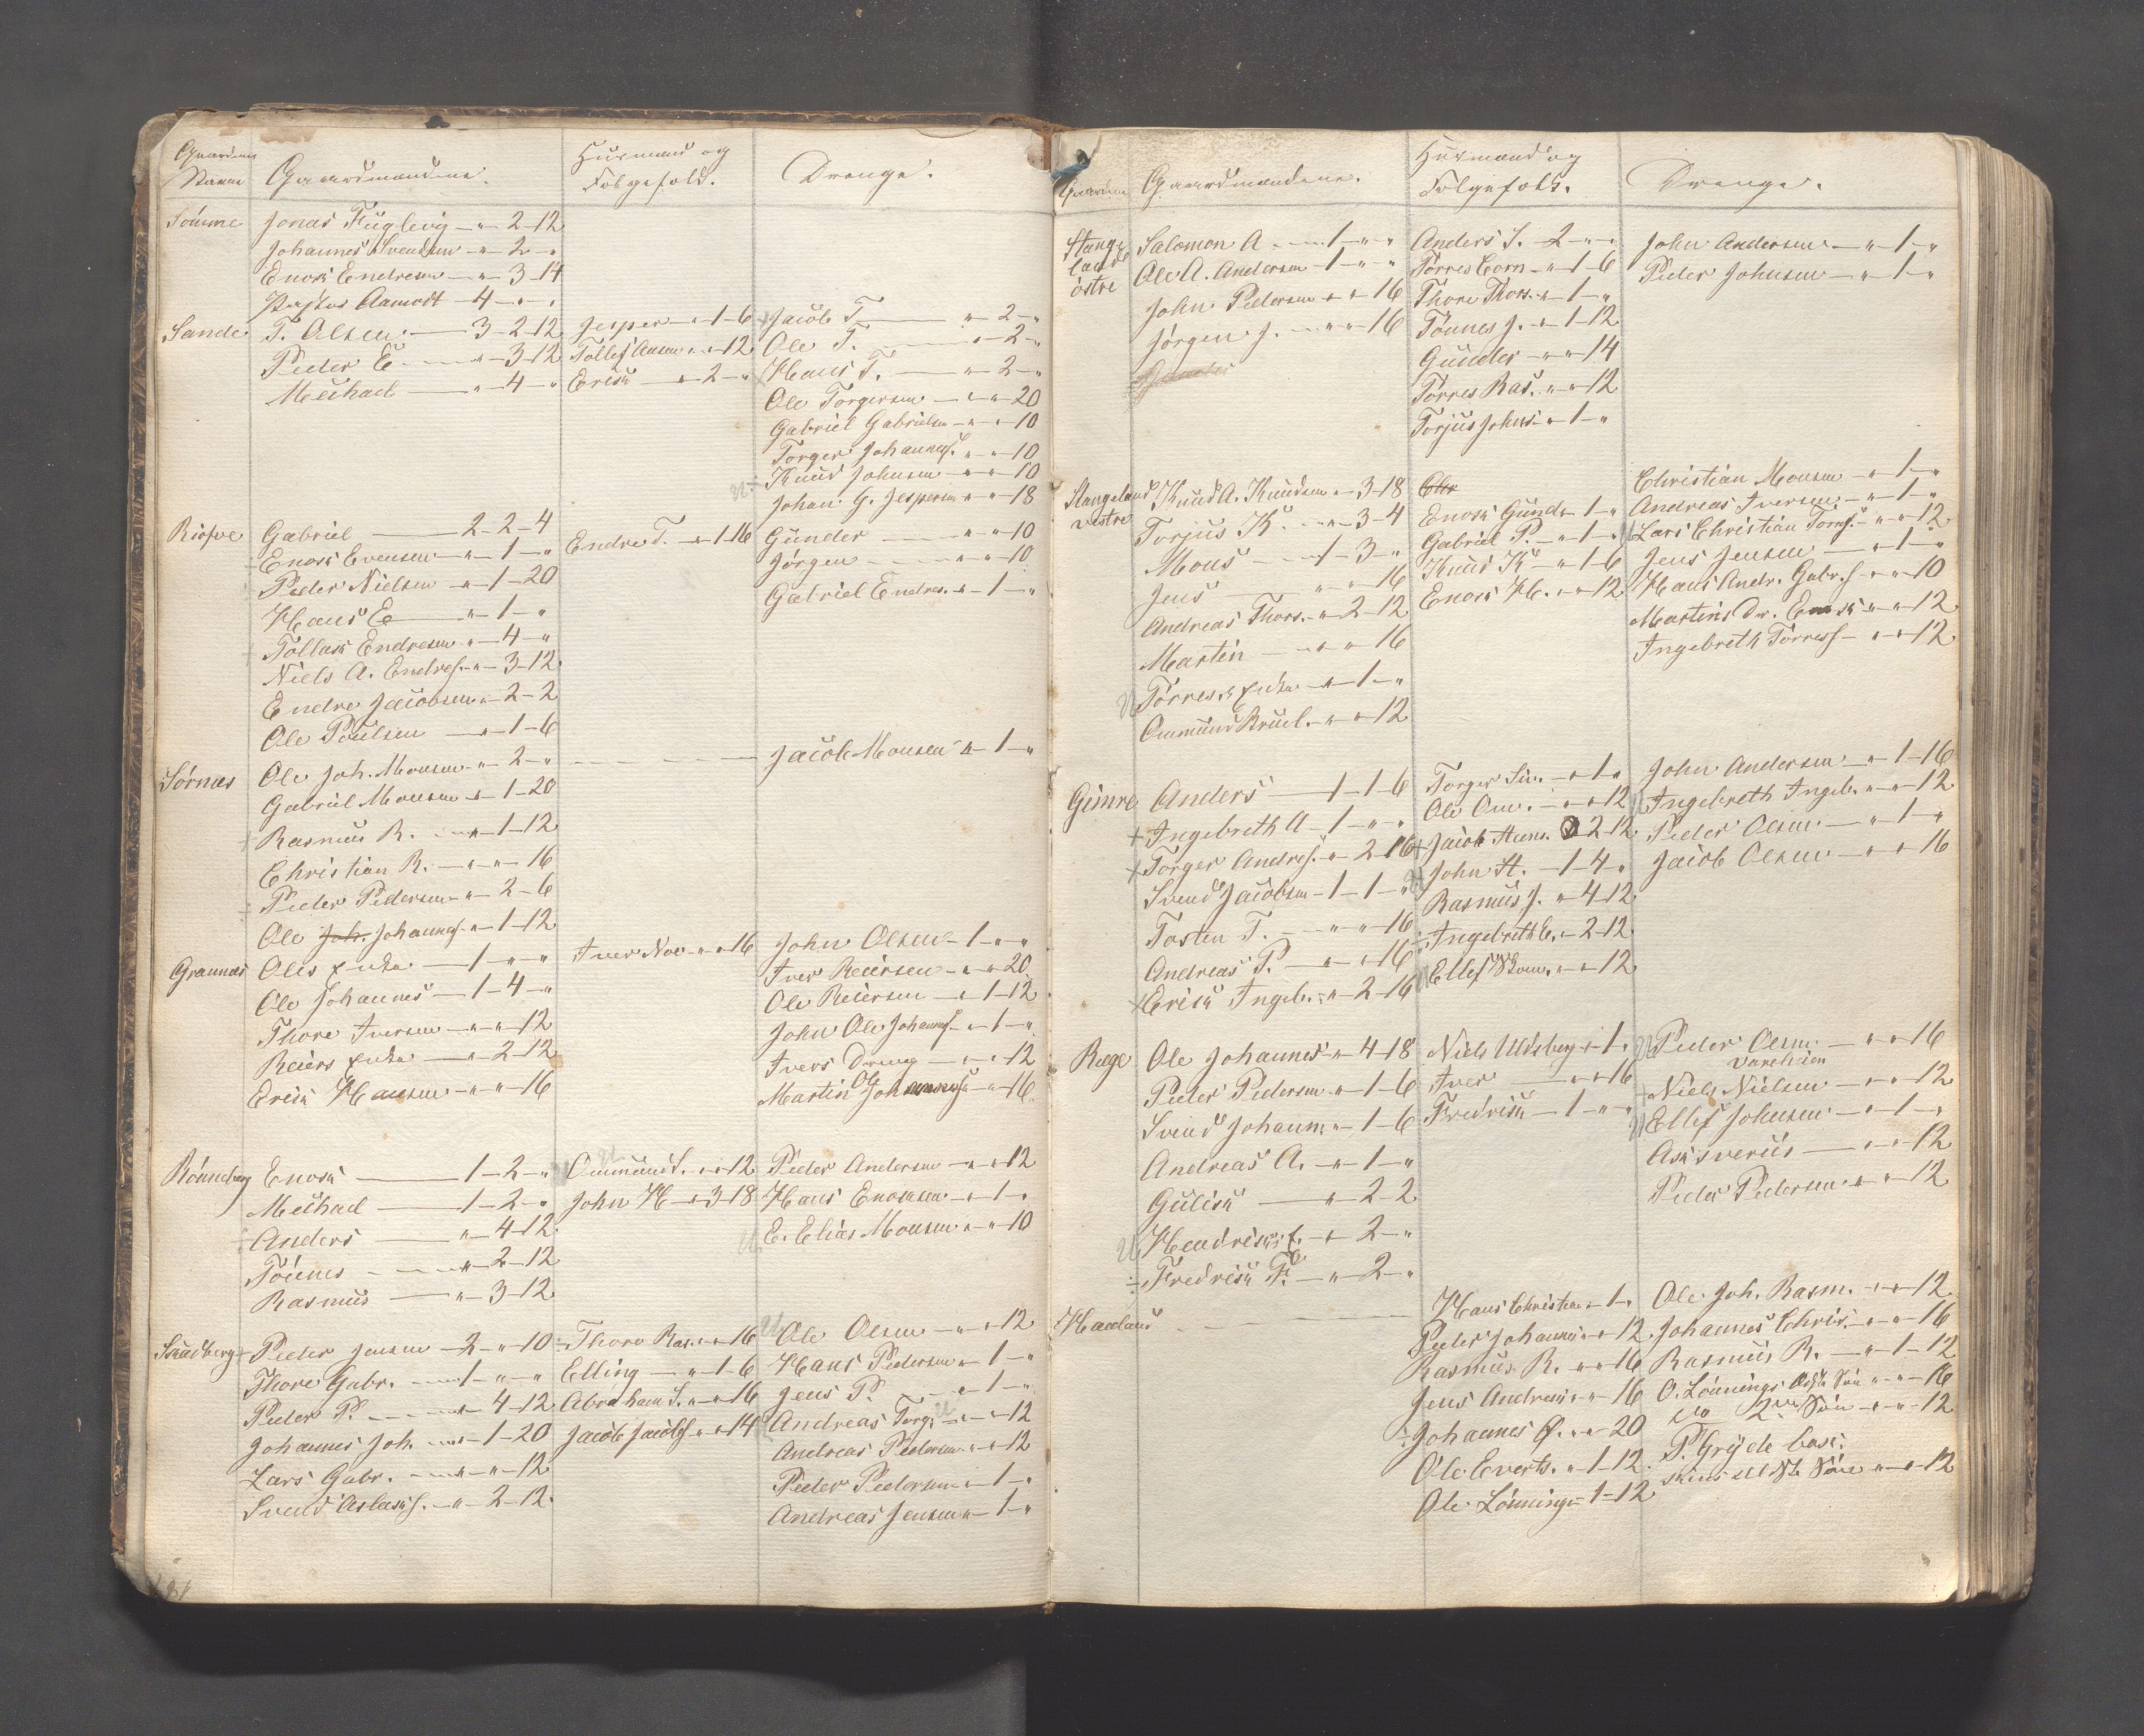 Gaardens Navne
Gaardmændene.
Huusmænd og Folgefolk.
Drenge.
Sömme
Jonas Fuglevig - " - 2 - 12
Johannes Svendsen - " - 2 - "
Enock Endresen - " - 3 - 14
Aamodt - 4 - " - "
Sande
T. Olsen - 3 - 2 - 12
Jesper - " - 1 - 6
Jacob T. - " - 2 - "
Peder E. - " - 3 - 12
Tollef Aasen " - " - 12
Ole T. - " - 2 - "
Michael - " - 4 - "
Erick - " - 2 - "
Hans T. - " - 2 - "
Ole Torgersen - " - " - 20
Gabriel Gabrielsen - " - " - 10
Torger Johannes. " - " - 10
Knud Johnsen - " - " - 10
Johan G. Jespersen " - " - 18
Risöe
Gabriel - 2 - 2 - 4
Endre T. - " - 1 - 16
Gunder - " - " - 10
Enock Evensen - " - 1 - "
Jörgen - " - " - 10
Peder Nielsen - " - 1 - 20
Gabriel Endres. - " - 1 - "
Hans E. - " - 1 - "
Tollack Endresen " - 4 - "
Niels A. Endres. - " - 3 - 12
Endre Jacobsen " - 2 - 2
Ole Poulsen - " - 1 - 6
Sörnæs
Ole Joh. Monsen - " - 2 - "
Jacob Monsen " - 1 - "
Gabriel Monsen - " - 1 - 20
Rasmus R. - " - 1 - 12
Christian R. - " - " - 16
Peder Pedersen - " - 2 - 6
Ole Joh. Johannes. - " - 1 - 12
Grannæs
Oles Enke - 1 - " - "
Iver Noe - " - " - 16
John Olsen - 1 - " - "
Ole Johannes - 1 - 4 - "
Iver Reiersen - " - " - 20
Thore Iversen - " - " - 12
Ole Reiersen - " - 1 - 12
Reiers Enke - " - 2 - 12
John Ole Johannes. - " - 1 - "
Erick Hansen - " - " - 16
Ivers Dreng - " - " - 12
Martin Ole Johannes. - " - " - 16
Rönneberg
Enock - 1 - 2 - "
Ommund S. " - " - 12
Peder Andersen - " - " - 12
Michael - 1 - 2 - "
John H. - " - 3 - 18
Hans Enocksen - " - 1 - "
Anders - " - 4 - 12
E. Elias Monsen " - " - 10
Tönnes - " - 2 - 12
Rasmus - " - 3 - 12
Sundberg
Peder Jensen - 2 - " - 10
Thore Ras. " - " - 16
Ole Olsen - " - " - 12
Thore Gabr. - 1 - " - "
Elling - " - 1 - 6
Hans Pedersen - " - 1 - "
Peder P. - " - 4 - 12
Abraham S. " - " - 16
Jens P. - " - 1 - "
Johannes Joh. - " - 1 - 20
Jacob Jacobs. - " - " - 14
Andreas Torg. - " - " - 12
Lars Gabr. - " - " - 12
Andreas Pedersen " - " - 12
Svend Aslacks. - " - 2 - 12
Peder Pedersen - " - 1 - "
Andreas Jensen " - 1 - "
Gaardene
Gaardmændene.
Huusmænd og Folgefolk.
Drenge.
Stangeland östre
Salomon A - 1 - " - "
Anders S. - 2 - " - "
John Andersen - " - 1 - "
Ole A. Andersen - 1 - " - "
Törres Corn - " - 1 - 6
Peder Johnsen - " - 1 - "
John Pedersen " - " - 16
Thore Thors. " - 1 - "
Jörgen J. - " - " - 16
Tönnes J. - " - 1 - 12
Gunder
Gunder - " - " - 14
Törres Ras. " - " - 12
Torjus Johns. - " - 1 - "
Stangeland vestre
Knud A. Knudsen " - 3 - 18
Chr
Christian Monsen - " - 1 - "
Torjus K. - " - 3 - 4
Enock Gund. " - 1 - "
Andreas Iversen - " - 1 - "
Mons - 1 - 3 - "
Gabriel P. - " - 1 - "
Lars Christian Törres. - " - " - 12
Jens - " - " - 16
Knud K - " - 1 - 6
Jens Jensen - " - 1 - "
Andreas Thors. - " - 2 - 12
Enock H. - " - " - 12
Hans Andr. Gabr.s - " - " - 10
Martin - " - " - 16
Martins Dr. Enock " - " - 12
Törres's Enke - " - 1 - "
Ingebreth Törress - " - " - 12
Ommund Kruel. - " - " - 12
Gimre
Anders - 1 - 1 - 6
Torger Siv. - " - 1 - "
John Andersen - " - 1 - 16
Ingebreth A - 1 - " - "
Ole Om. - " - " - 12
Ingebreth Ingeb. " - " - 12
Torger Andres. " - 2 - 16
Jacob 2 - 12
Peder Olsen - " - 1 - "
Svend Jacobsen - 1 - 1 - "
John H. - 1 - 4 - "
Jacob Olsen - " - " - 16
Tosten T. - " - " - 16
Rasmus J. " - 4 - 12
Andreas P. - " - " - 16
Ingebreth E. " - 2 - 12
Erick Ingeb. - " - 2 - 16
Ellef Skom. " - " - 12
Rege
Ole Johannes - " - 4 - 18
Niels Ulsberg - " - 1 - "
Peder Olsen - " - " - 16
Varehiem
Peder Pedersen - " - 1 - 6
Iver - " - " - 16
Niels Nielsen - " - " - 12
Svend Johann. " - 1 - 6
Fredrick - 1 - " - "
Ellef Johnsen - " - 1 - "
Andreas A. - " - 1 - "
Asksverus - " - " - 12
Gulick - " - 2 - 2
Peder Pedersen " - " - 12
Hendricks E. - " - 2 - "
Fredrick F. - " - 2 - "
Haaland
Hans Christian " - 1 - "
Ole Joh. Rasm. - " - " - 12
Peder Johannes " - " - 12
Johannes Chris. - " - " - 16
Rasmus R. " - " - 16
Rasmus R. - " - 1 - 12
Jens Andreas " - " - 16
O. Lönnings Ældste Sön " - " - 16
Johannes Ø. " - " - 20
do 2den Sön - " - " - 12
Ole Everts. " - 1 - 12
P. Gryde
Ældste Sön " - " - 12
Ole Lönning " - 1 - 12